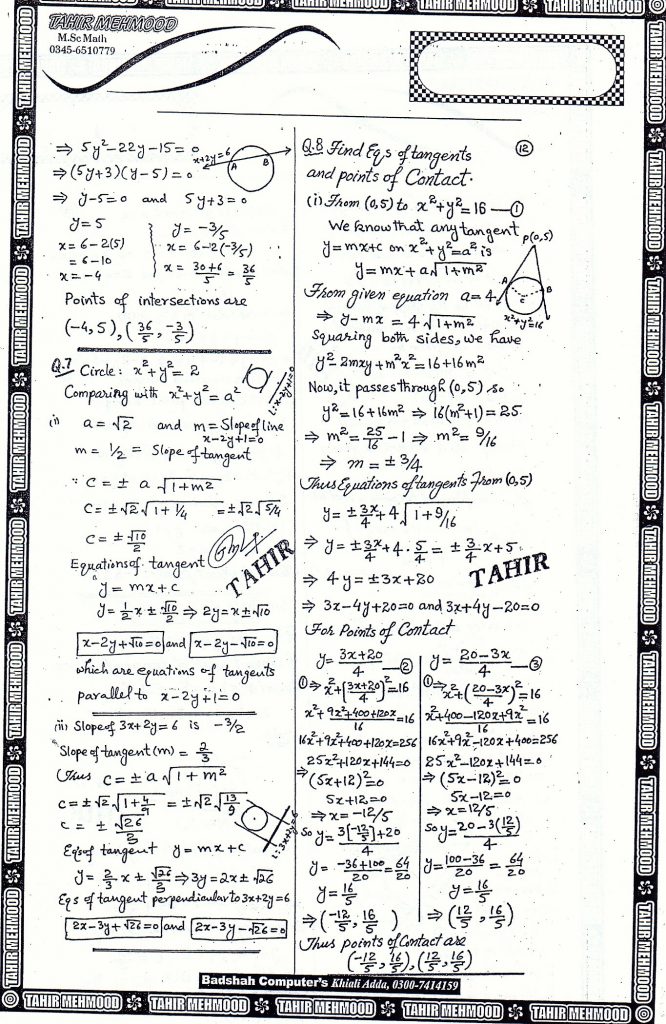 TAHIR MEHMOOD
M.Sc Math
0345-6510779
⇒ 5y²-22y-15=0
⇒(5y+3)(y-5)=0
x+2y=6
A B
⇒ y-5=0 and 5y+3=0
y=5
x=6-2(5)
=6-10
x=-4
y=-3/5
x=6-2(-3/5)
x = 30+6/5 = 36/5
Points of intersections are
(-4,5), (36/5, -3/5)
Q.7 Circle: x²+y²=2
Comparing with x²+y²=a²
L: x-2y+1=0
(i) a=√2 and m=Slope of line
x-2y+1=0
m = 1/2 = Slope of tangent
∵ C = ± a √1+m²
C = ±√2 √1+1/4 = ±√2 √5/4
C = ± √10/2
Equations of tangent
y=mx+c
y=1/2 x ± √10/2 ⇒ 2y=x±√10
x-2y+√10=0 and x-2y-√10=0
which are equations of tangents
parallel to x-2y+1=0
(ii) Slope of 3x+2y=6 is -3/2
Slope of tangent (m) = 2/3
Thus c=±a√1+m²
c=±√2 √1+4/9 = ±√2 √13/9
c = ± √26/3
L: 3x+2y=6
Eq's of tangent y=mx+c
y=2/3 x ± √26/3 ⇒3y=2x±√26
Eq s of tangent perpendicular to 3x+2y=6
2x-3y+√26=0 and 2x-3y-√26=0
TAHIR
Q.8 Find Eq,s of tangents
12
and points of Contact.
(i) From (0,5) to x²+y²=16 —①
We know that any tangent
y=mx+c on x²+y²=a² is
y=mx+a√1+m²
P(0,5)
A B
C
x²+y²=16
From given equation a=4
⇒ y-mx = 4√1+m²
Squaring both sides, we have
y²-2mxy+m²x²=16+16m²
Now, it passes through (0,5) so
y²=16+16m² ⇒ 16(m²+1)=25
⇒ m²=25/16 -1 ⇒ m²=9/16
⇒ m=±3/4
Thus Equations of tangents From (0,5)
y=±3x/4+4√1+9/16
⇒ y=±3x/4+4.5/4 = ±3/4 x+5
TAHIR
⇒ 4y=±3x+20
⇒ 3x-4y+20=0 and 3x+4y-20=0
For Points of Contact
y=3x+20/4 —②
①⇒ x²+(3x+20/4)²=16
x²+9x²+400+120x/16=16
16x²+9x²+400+120x=256
25x²+120x+144=0
⇒ (5x+12)²=0
5x+12=0
⇒ x=-12/5
So y=3[-12/5]+20/4
y=-36+100/20=64/20
y=16/5
⇒(-12/5, 16/5)
y=20-3x/4 —③
①⇒ x²+(20-3x/4)²=16
x²+400-120x+9x²/16=16
16x²+9x²-120x+400=256
25x²-120x+144=0
⇒ (5x-12)²=0
5x-12=0
⇒ x=12/5
So y=20-3(12/5)/4
y=100-36/20=64/20
y=16/5
⇒ (12/5, 16/5)
Thus points of Contact are
(-12/5, 16/5), (12/5, 16/5)
Badshah Computer's Khiali Adda, 0300-7414159
TAHIR MEHMOOD TAHIR MEHMOOD TAHIR MEHMOOD TAHIR MEHMOOD TAHIR MEHMOOD